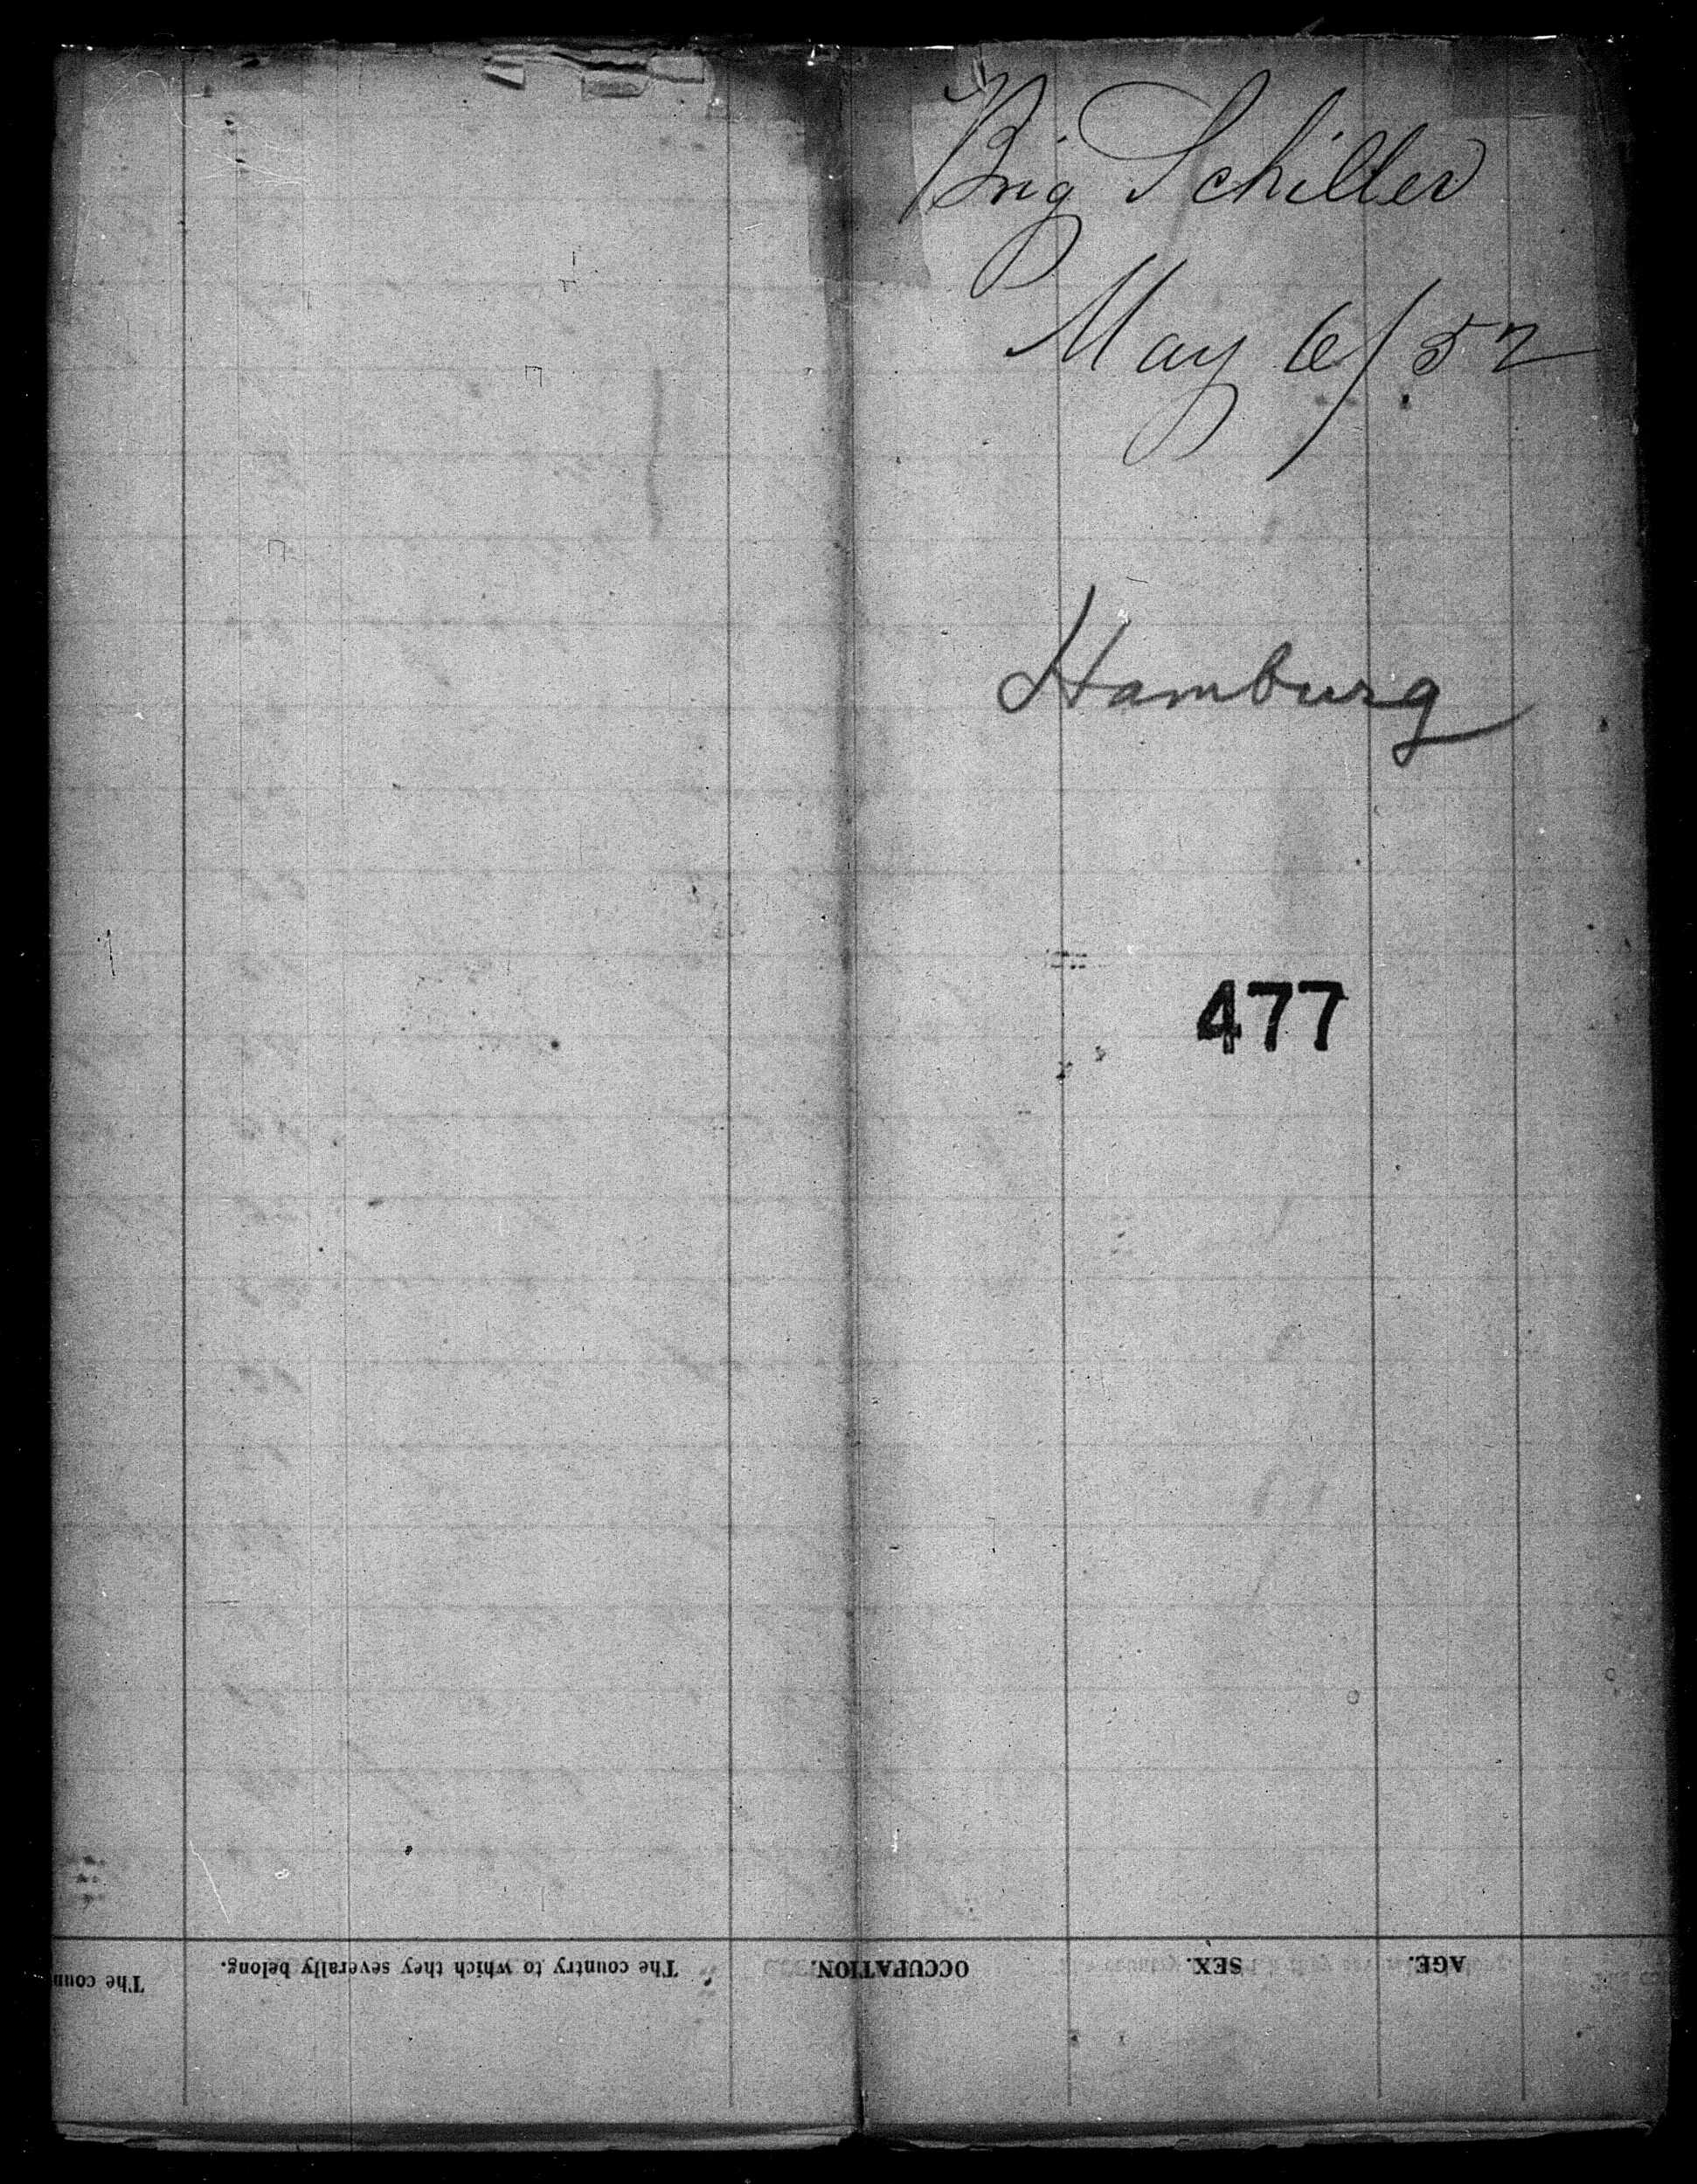 Brig Schiller
May 6/52
Hamburg
477
AGE. SEX. OCCUPATION. The country to which they severally belong. The coun